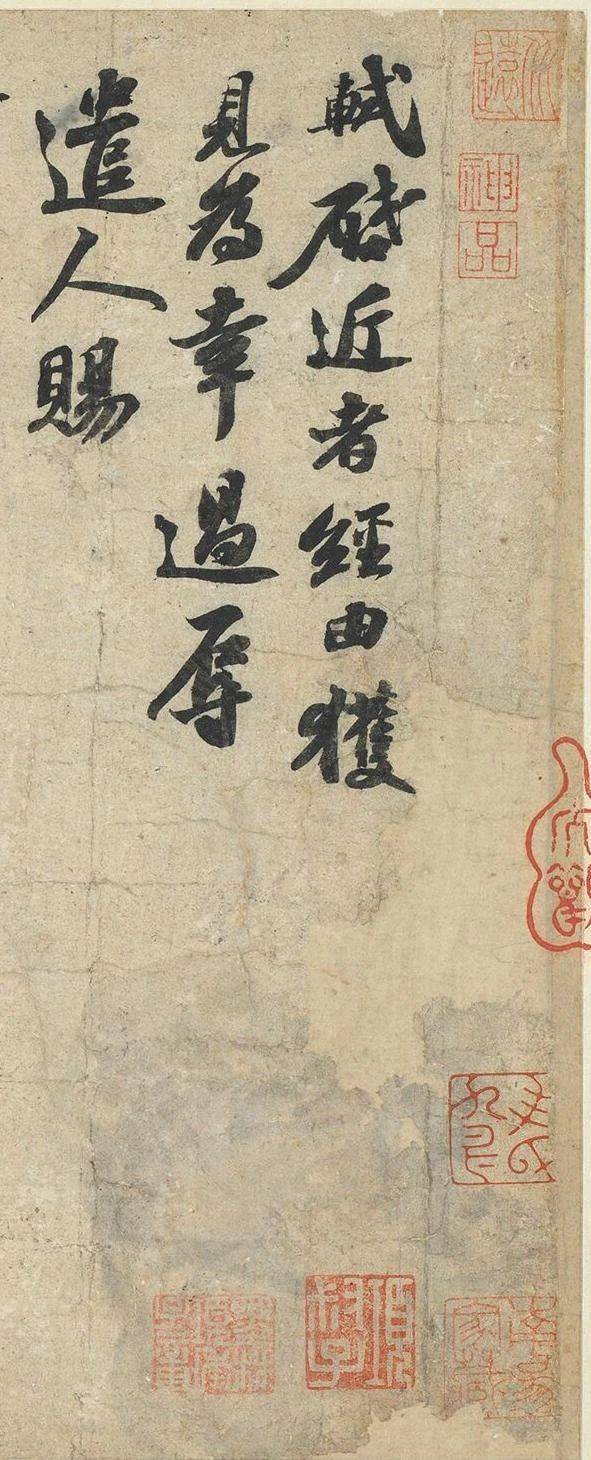 軾啓近者經由獲
見為幸過辱
遣人賜
神品